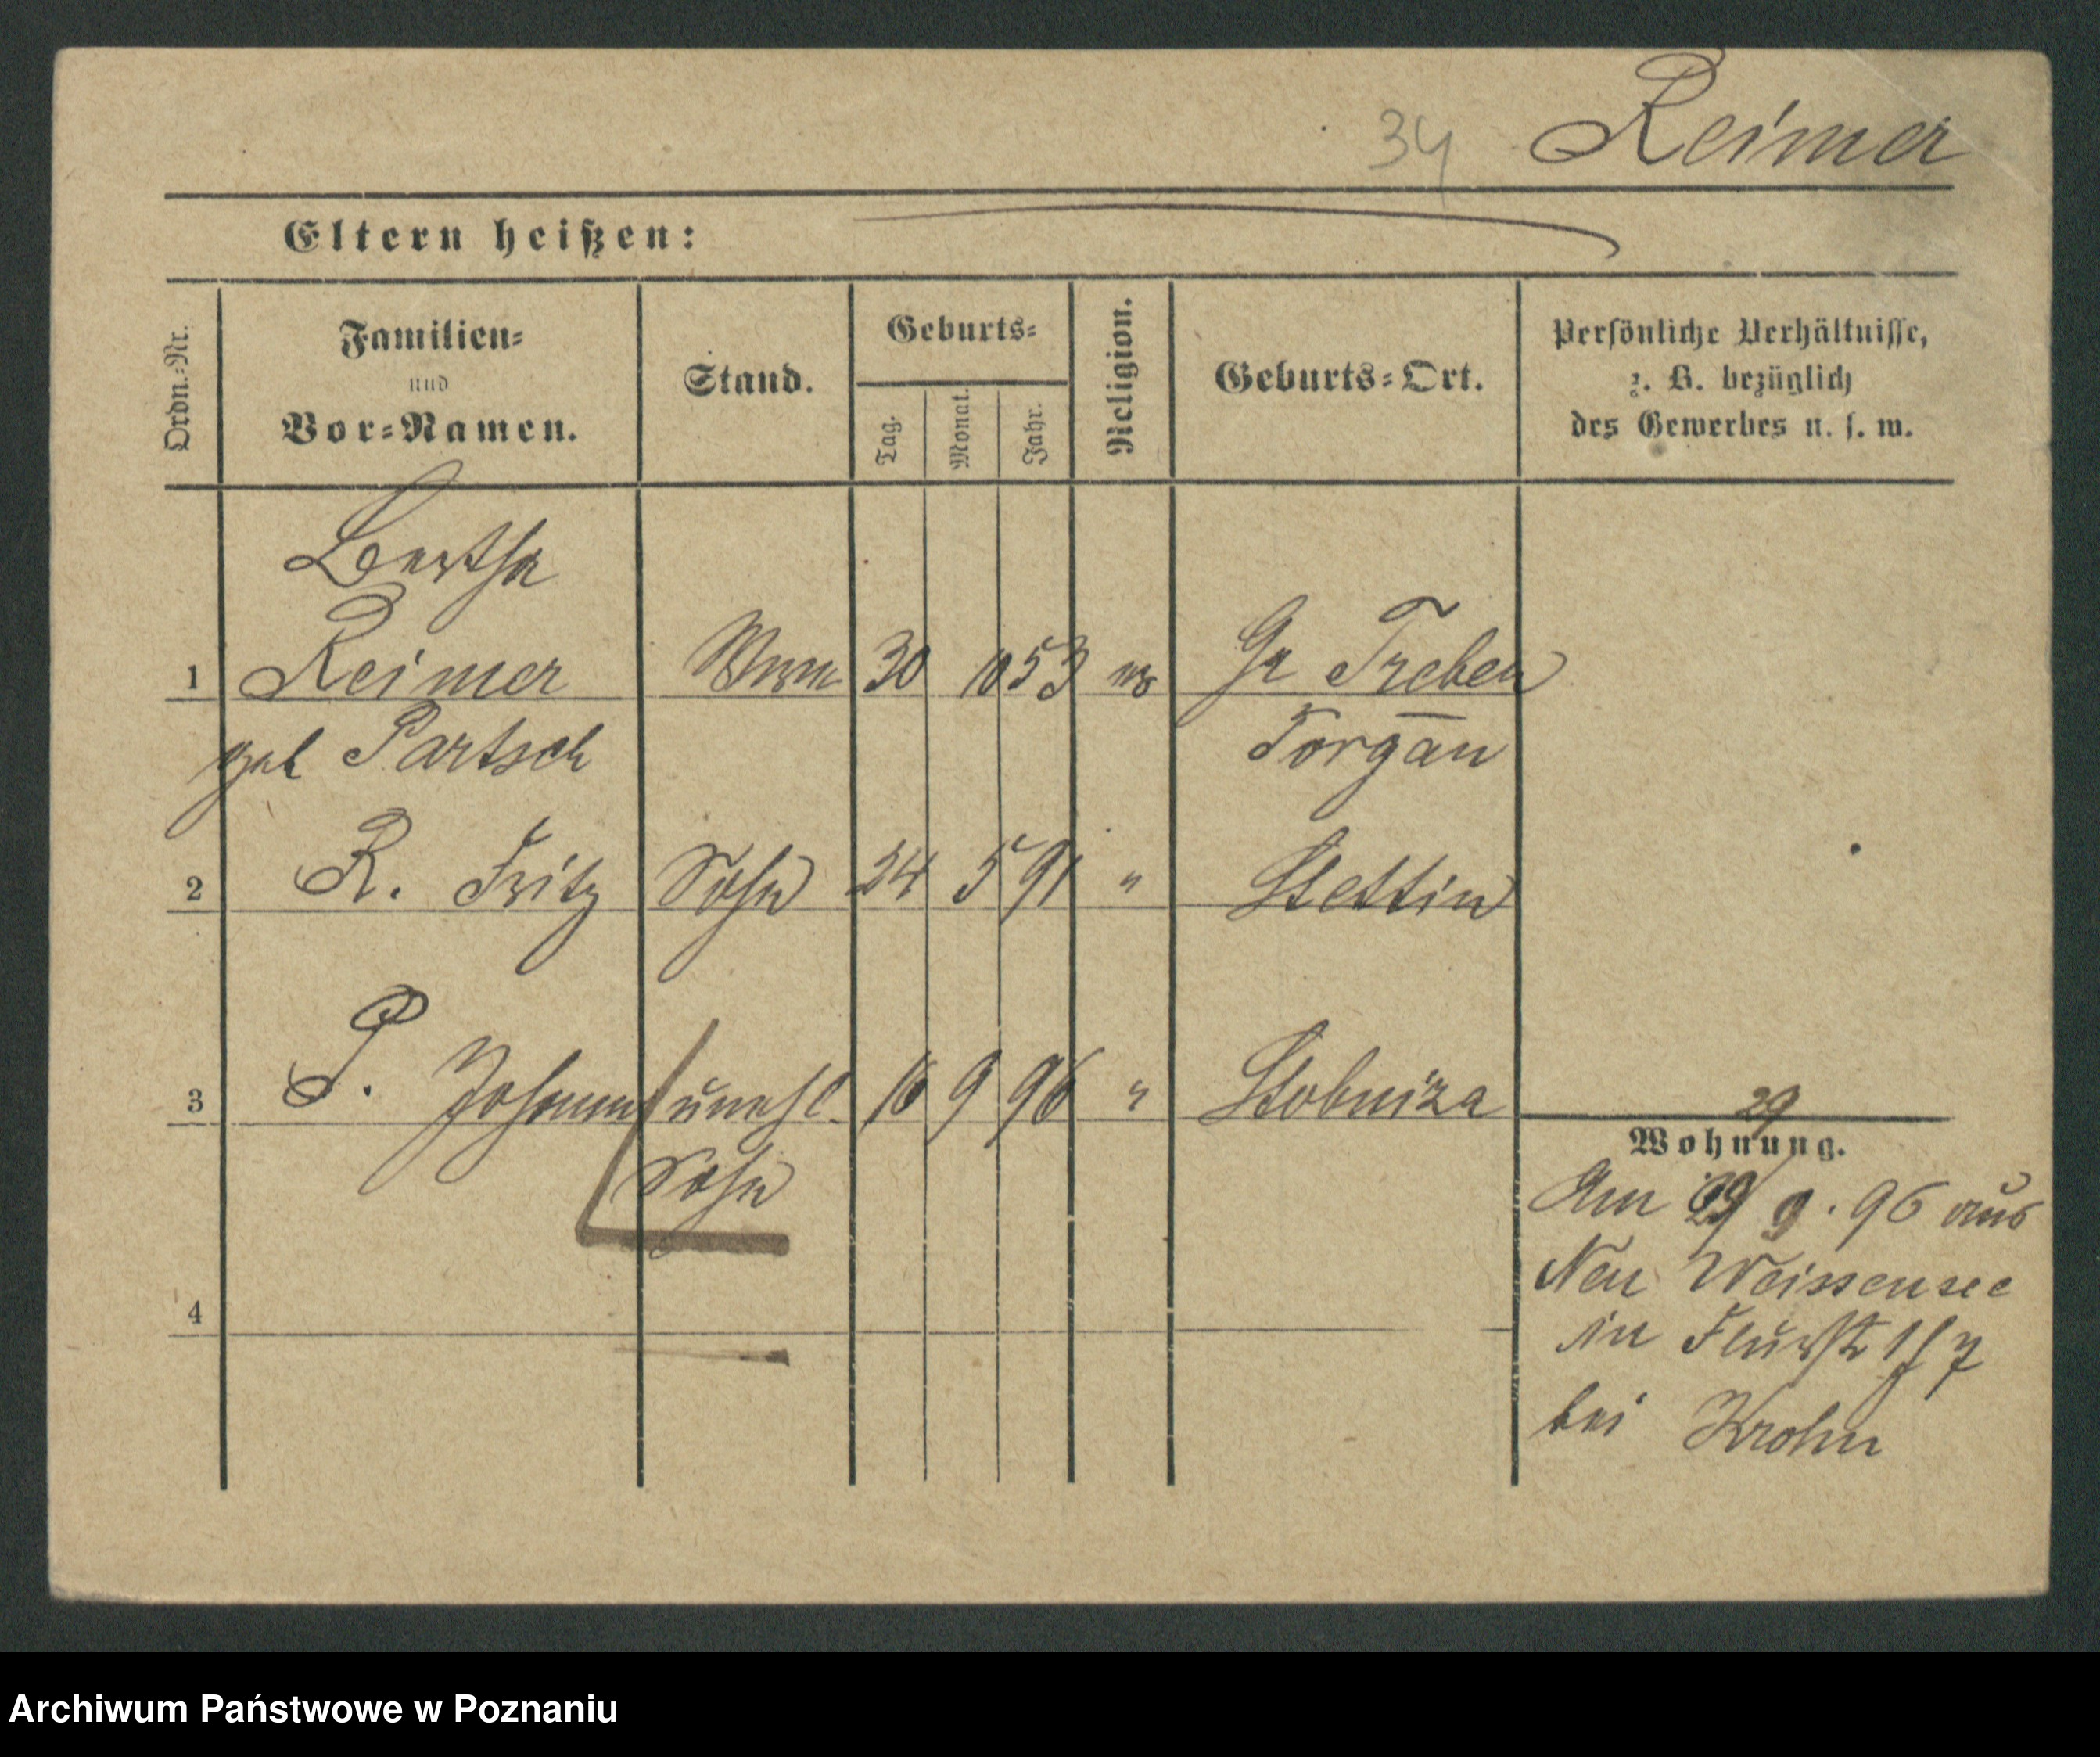 34 Reimer
Eltern heißen:
Ordn.-Nr.
Familien-
und
Vor-Namen.
Stand.
Geburts-
Tag.
Monat.
Jahr.
Religion.
Geburts-Ort.
Persönliche Verhältnisse,
z. B. bezüglich
des Gewerbes u. s. w.
Bertha
1 Reimer Wwe 30 10 53 Gr Treben
geb Partsch Torgau
2 R. Fritz Sohn 24 5 91 " Stettin
3 P. Johann unehl. 16 9 96 " Stobniza
Sohn
29
Wohnung.
Am 29/9.96 aus
Neu Weissensee
in
bei Krohn
4
Archiwum Państwowe w Poznaniu